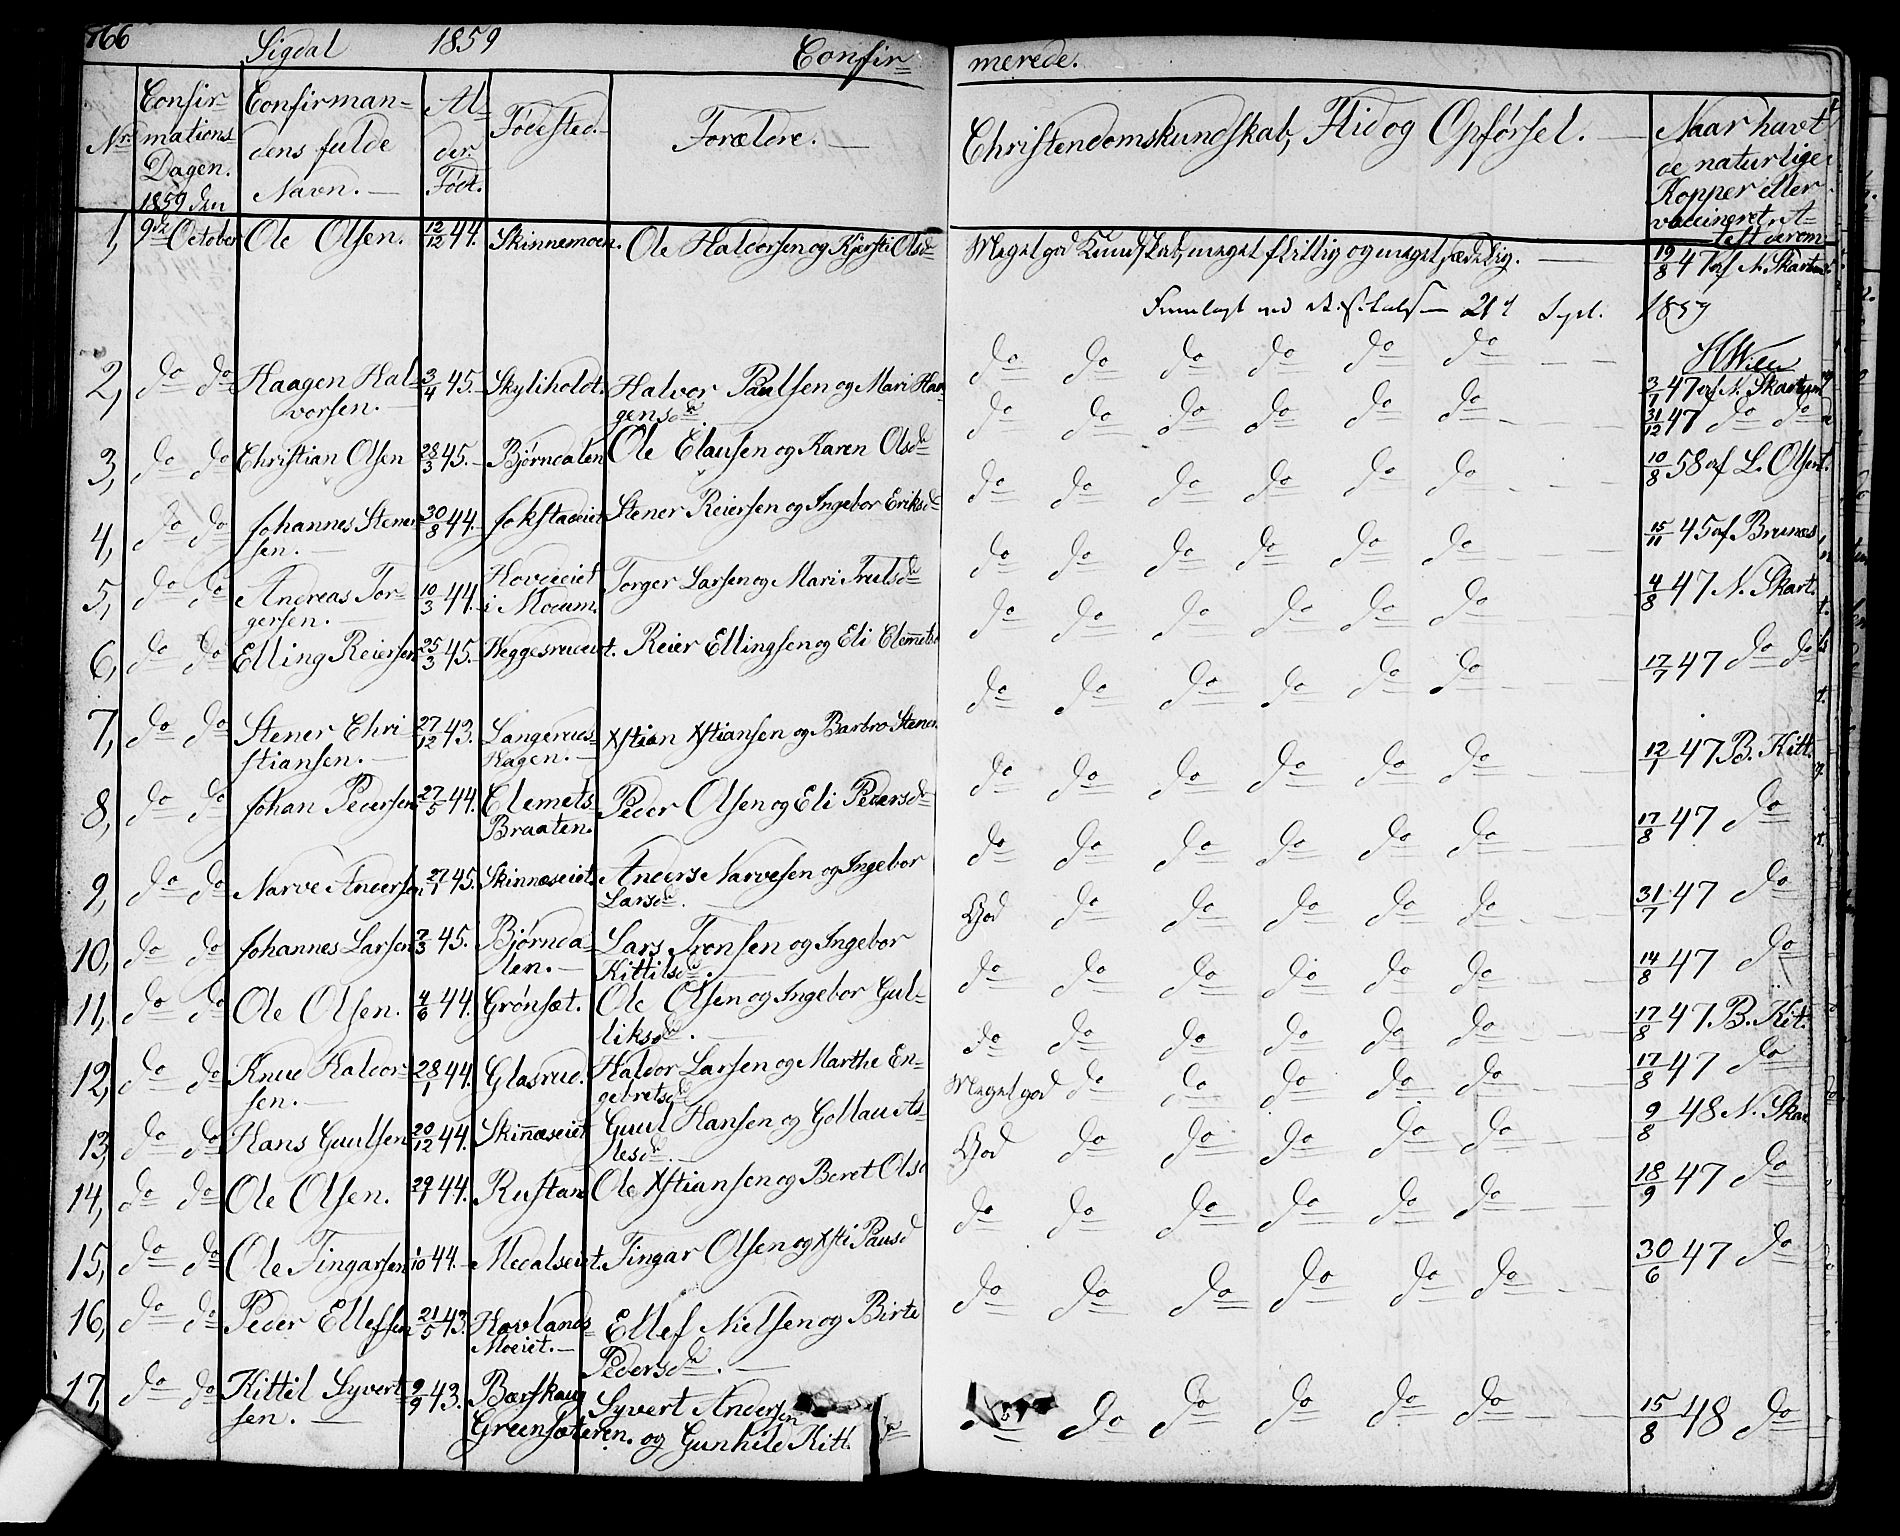 166 Sigdal 1859 Confir= merede.
Nr. Confir= mations Dagen. 1859 den
Confirman= dens fulde Navn.
Al= der. Født.
Fødested.
Forældre.
Christendomskundskab, Flid og Opførsel.
Naar havt de naturlige Kopper eller vaccineret, A= test derom
1, 9de October Ole Olsen. 12/12 44. Skinnemoen. Ole Halvorsen og Kjersti Olsd. Meget god Kundskab, meget flittig og meget sædelig. 19/8 47 af N. Skartum
Fremlagt ved 21d Sept. 1859
HWille
2, do do Haagen Hal= 3/4 45. Skyliholdt. Halvor Paalsen og Mari Haa= do do do do do do 3/1 47 af N. Skartum
vorsen. gensd.
3, do do Christian Olsen 28/3 45. Bjørndalen Ole Clausen og Karen Olsd. do do do do do do 31/12 47 do do
4, do do Johannes Stener 30/8 44. Jokstadeiet Stener Reiersen og Ingebor Eriksd. do do do do do do 10/8 58 af L. Olsen.
sen.
5, do do Andreas Tor= 10/3 44. Hovdeeiet Torger Larsen og Mari Truelsd. do do do do do do 15/11 45 af Brunæs
gersen. i Modum.
6, do do Elling Reiersen 25/3 45. Heggesrudeiet. Reier Ellingsen og Eli Clemetsd. do do do do do do 4/8 47 N. Skart.
7, do do Stener Chri 27/12 43. Langeruds= Xstian Xstiansen og Barbro Stener. do do do do do do 17/7 47 do do
stiansen. Hagen.
8, do do Johan Pedersen 27/5 44. Clemets= Peder Olsen og Eli Pedersd. do do do do do do 12/1 47 B. Kitt.
Braaten.
9, do do Narve Andersen 27/1 45. Skinnæseiet. Anders Narvesen og Ingebor do do do do do do 17/8 47 do
Larsd.
10, do do Johannes Larsen 7/3 45. Bjørnda= Lars Tronsen og Ingebor God do do do do do 31/7 47 do
len. Kittilsd.
11, do do Ole Olsen. 4/6 44. Grønsæt. Ole Olsen og Ingebor Gul= do do do do do do 14/8 47 do
liksd.
12, do do Knud Halvor= 28/1 44. Glasrud. Haldor Larsen og Marthe En= do do do do do do 17/8 47. B. Kit.
sen. gebretsd.
13, do do Hans Guulsen 20/12 44. Skinnæseiet Guul Hansen og Gollau As= Meget god do do do do do 17/8 47 do
lesd.
14, do do Ole Olsen. 29/1 44. Rustan Ole Xstiansen og Beret Olsd God do do do do do 9/8 48 N. Skar
15, do do Ole Tingarsen 1/10 44. Medalseiet. Tingar Olsen og Xsti Pausd do do do do do do 18/9 47 do
16, do do Peder Ellefsen 21/5 43. Hovlands= Ellef Nielsen og Birte do do do do do do 30/6 47 do
Moeiet. Pedersd.
17, do do Kittil Syvert 9/9 43. Bærskaug Syvert Andersen do do do do do do 15/8 48 do
sen. Grensæteren. og Gunhild Kitt.